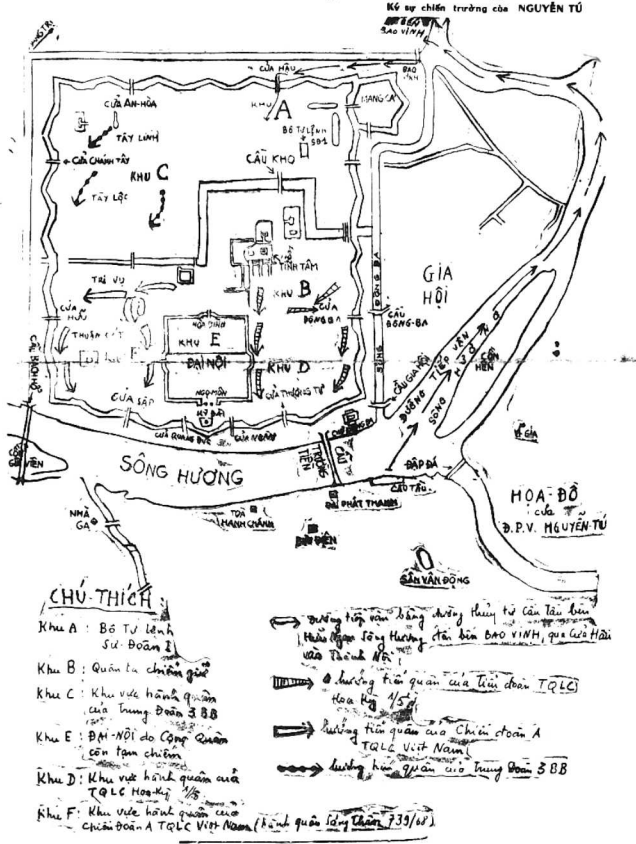 Ký sự chiến trường của NGUYỄN TÚ
BẾN
BAO VINH
CỬA HẬU
BAO VINH
KHU A
MANG CÁ
CỬA AN-HÒA
TÂY LINH
BỘ TƯ LỆNH
SĐ1
CỬA CHÁNH TÂY
KHU C
CẦU KHO
TÂY LỘC
TỊNH TÂM
GIA
HỘI
TRI VỤ
KHU B
CỬA
ĐÔNG BA
SÔNG ĐÔNG BA
CẦU
ĐÔNG-BA
CỬA
HỮU
HÒA BÌNH
KHU E
ĐẠI NỘI
KHU D
CỬA THƯỢNG TỨ
CỒN
HẾN
CẦU GIA HỘI
ĐƯỜNG TIẾP VẬN
SÔNG HƯƠNG
CỬA SẬP
NGỌ MÔN
KỲ ĐÀI
CỬA QUẢNG ĐỨC
CỬA NGĂN
VĨ GIẠ
SÔNG HƯƠNG
CẦU
TRƯỜNG
TIỀN
ĐẬP ĐÁ
CẦU TÀU
NHÀ
GA
TOÀ
HÀNH CHÁNH
ĐÀI PHÁT THANH
BƯU ĐIỆN
SÂN VẬN ĐỘNG
HỌA-ĐỒ
của
Đ.P.V. NGUYỄN-TÚ
CHÚ-THÍCH
Khu A : Bộ Tư Lệnh
Sư Đoàn I
Khu B : Quân ta chiếm giữ
Khu C : Khu vực hành quân
của Trung Đoàn 3 BB
Khu E : ĐẠI-NỘI do Cộng Quân
còn tạm chiếm
Khu D : Khu vực hành quân của
TQLC Hoa-Kỳ 1/5
Khu F : Khu vực hành quân của
Chiến Đoàn A TQLC Việt Nam (hành quân Sóng Thần 739/68)
Đường tiếp vận bằng đường thủy từ Cầu tàu bên
Hữu Ngạn Sông Hương đến bến BAO VINH, qua Cửa Hậu
vào Thành Nội
hướng tiến quân của Tiểu đoàn TQLC
Hoa Kỳ 1/5
hướng tiến quân của Chiến đoàn A
TQLC Việt Nam
hướng tiến quân của Trung Đoàn 3 BB